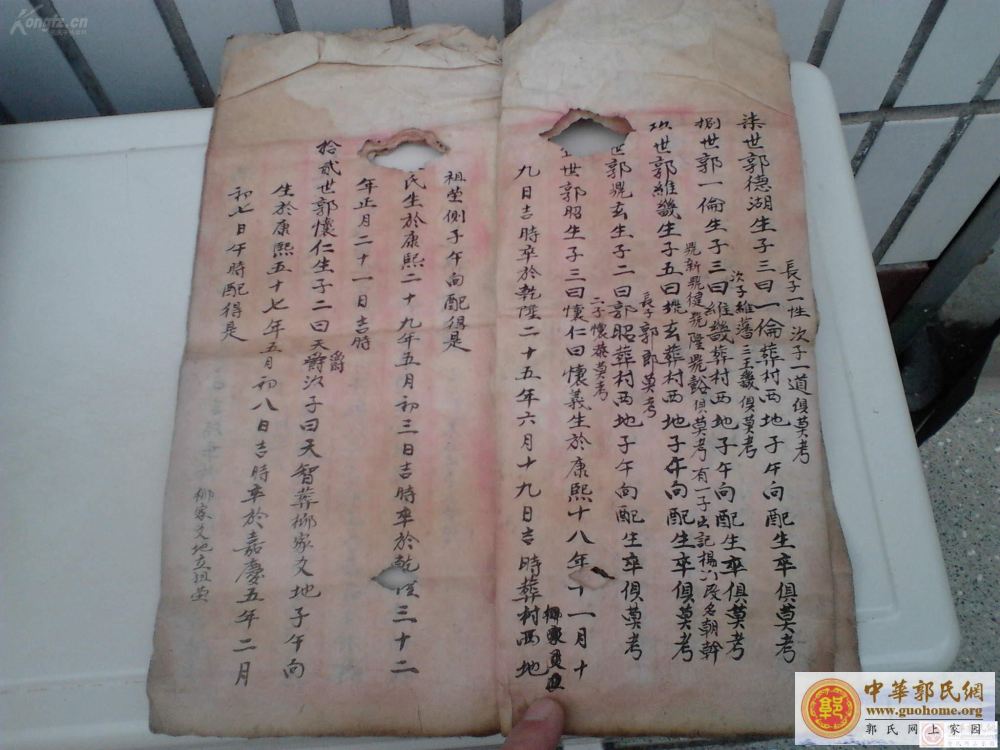 柒世郭德湖生子三曰一倫葬村西地子午向配生卒俱莫考
長子一性 次子一道 俱莫考
捌世郭一倫生子三曰維畿葬村西地子午向配生卒俱莫考
次子維藩 三王畿 俱莫考
玖世郭維畿生子五曰 玄葬村西地子午向配生卒俱莫考
俱莫考 有一子出記楊 改名朝幹
世郭 玄生子二曰郭昭葬村西地子午向配生卒俱莫考
長子郭郎莫考
世郭昭生子三曰懷仁曰懷義生於康熙十八年十一月十
二子懷 莫考
九日吉時卒於乾隆二十五年六月十九日吉時葬村西地
柳家
祖塋側子午向配得是
氏生於康熙二十九年五月初三日吉時卒於乾隆三十二
年正月二十一日吉時
拾貳世郭懷仁生子二曰天爵次子曰天智葬柳家 地子午向
爵
生於康熙五十七年五月初八日吉時卒於嘉慶五年二月
初七日午時配得是
柳家 地立祖塋
Kongfz.cn
中華郭氏網
www.guohome.org
郭氏网上家园